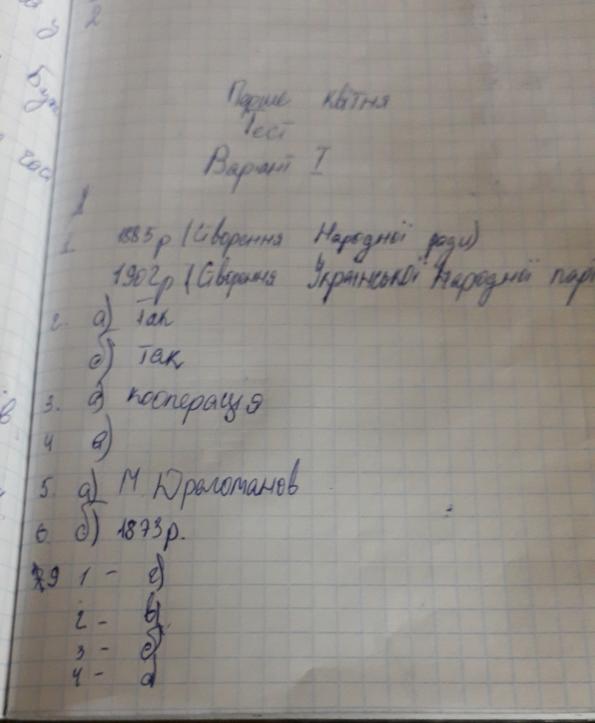 Перше квітня
Тест
Варіант I
1
1. 1885р (Створення Народної ради)
1902р (Створення Української Народної парт
2. а) Так
б) так
3. а) кооперація
4 в)
5. а) М. Драгоманов
6 б) 1873р.
9 1 - г)
2 - в)
3 - б)
4 - а